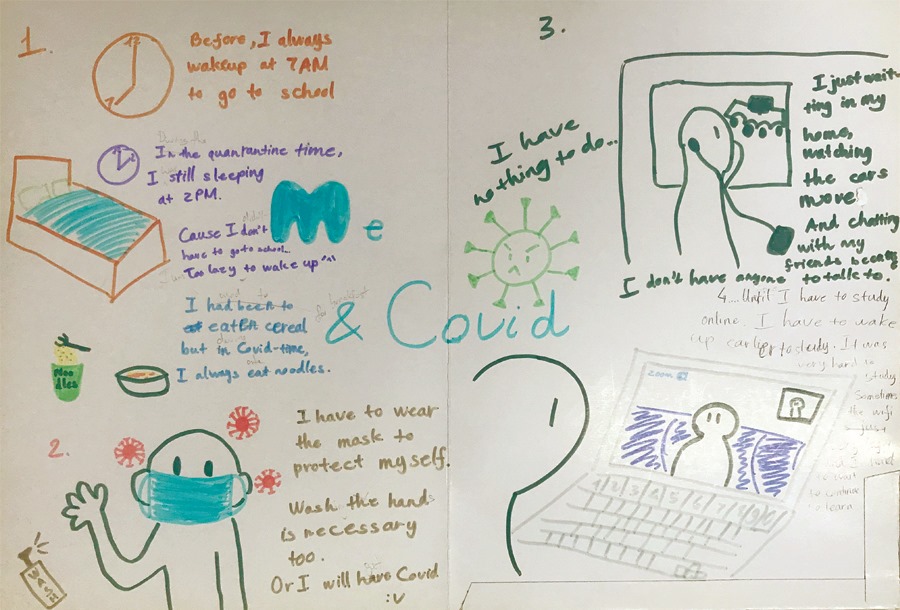 1.
12
7
Before, I always
wakeup at 7AM
to go to school
In the quarantine time,
I still sleeping
at 2PM.
Cause I don't
have to go to school...
Too lazy to wake up ^^
I had been to
eaten cereal
but in Covid-time,
I always eat noodles.
Noo
dles
Me
& Covid
2.
I have to wear
the mask to
protect myself.
Wash the hands
is necessary
too.
Or I will have Covid
:v
WASH
3.
I have
nothing to do...
I just wait
ting in my
home,
watching
the cars
move!
And chatting
with my
friends because
I don't have anyone to talk to.
4....Until I have to study
online. I have to wake
up earlier to study. It was
very hard to
study
Sometimes
the wifi
just
to wait
to continue
to learn
zoom